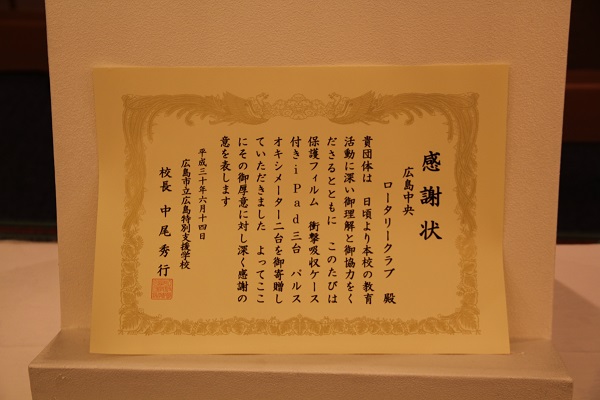 感謝状
広島中央
ロータリークラブ　殿
貴団体は　日頃より本校の教育
活動に深い御理解と御協力をく
ださるとともに　このたびは
保護フィルム　衝撃吸収ケース
付きiPad三台　パルス
オキシメーター二台を御寄贈し
ていただきました　よってここ
にその御厚意に対し深く感謝の
意を表します
平成三十年六月十四日
広島市立広島特別支援学校
校長　中尾秀行